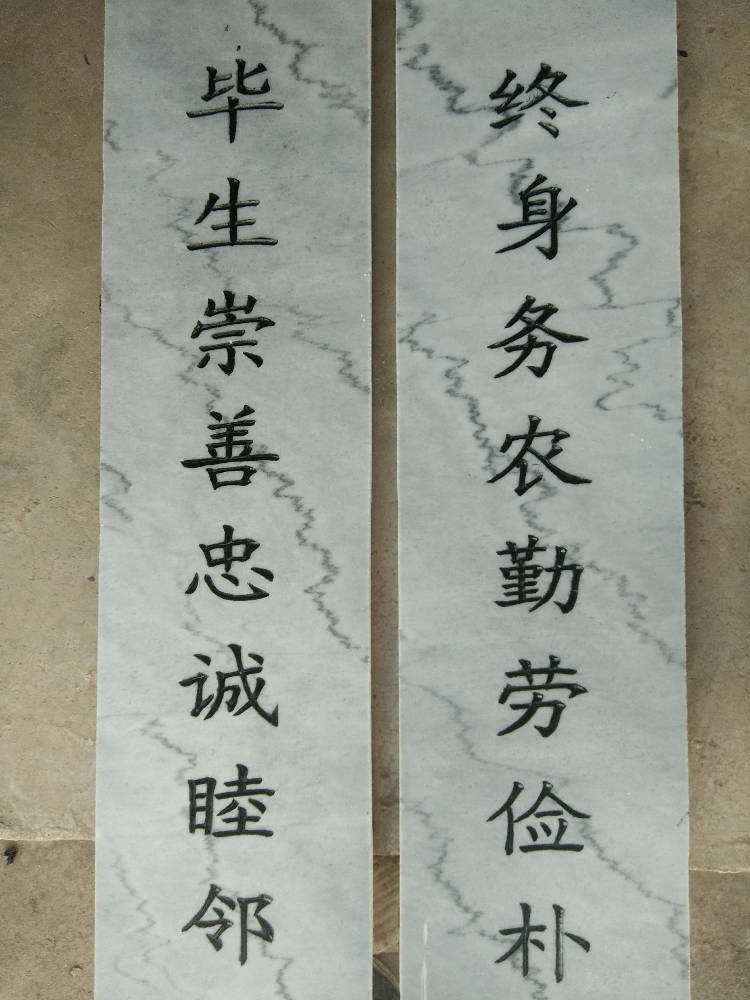 终身务农勤劳俭朴
毕生崇善忠诚睦邻